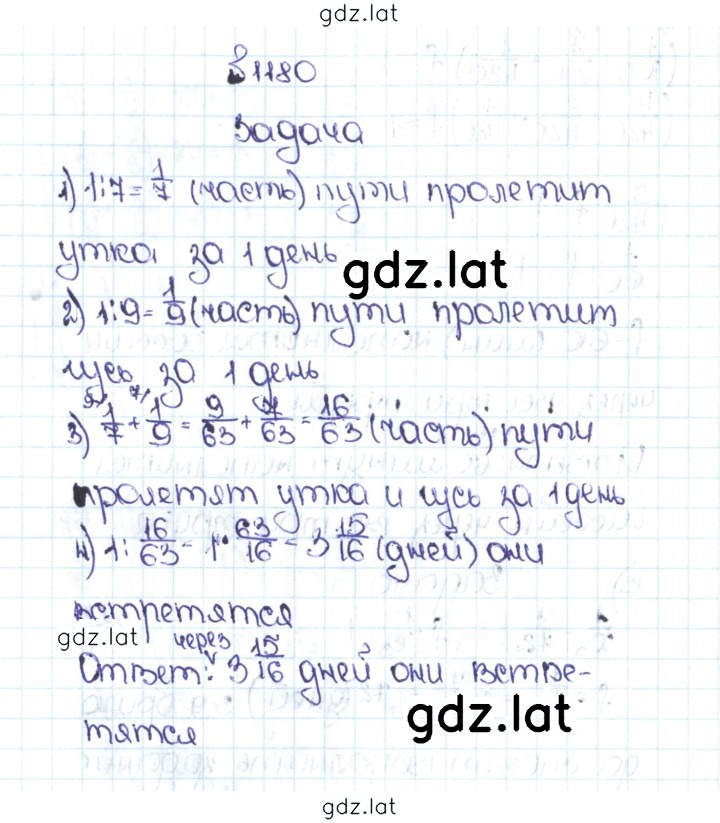 gdz.lat
§1180
Задача
1) 1:7=1/7 (часть) пути пролетит
утка за 1 день
gdz.lat
2) 1:9=1/9 (часть) пути пролетит
гусь за 1 день
3) 1/7 9/ + 1/9 7/ = 9/63 + 7/63 = 16/63 (часть) пути
пролетят утка и гусь за 1 день
4) 1: 16/63 = 1· 63/16 = 3 15/16 (дней) они
встретятся
gdz.lat
Ответ: через 3 15/16 дней они встре-
gdz.lat
тятся
gdz.lat